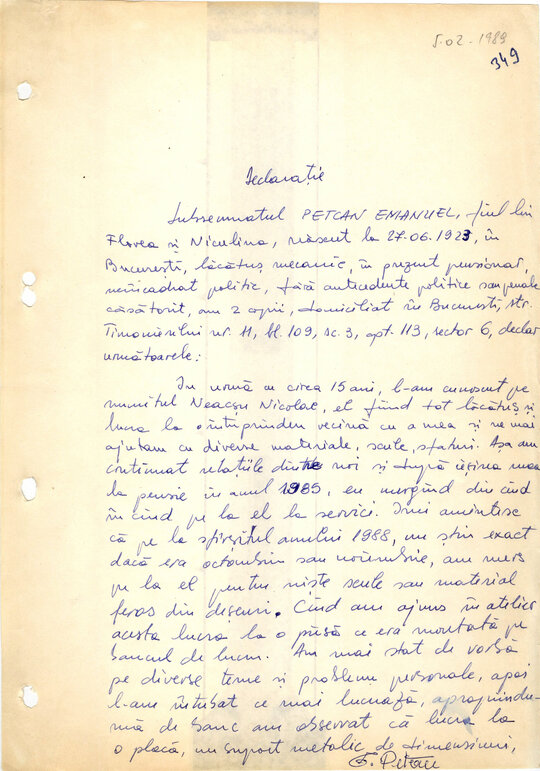 5.02.1989
349
Declarație
Subsemnatul PETCAN EMANUEL, fiul lui
Florea și Niculina, născut la 27.06.1923, în
București, lăcătuș mecanic, în prezent pensionar,
neîncadrat politic, fără antecedente politice sau penale
căsătorit, am 2 copii, domiciliat în București, str.
Timonierului nr. 11, bl. 109, sc. 3, apt. 113, sector 6, declar
următoarele:
În urmă cu circa 15 ani, l-am cunoscut pe
numitul Neacșu Nicolae, el fiind tot lăcătuș și
lucra la o întreprindere vecină cu a mea și ne mai
ajutam cu diverse materiale, scule, sfaturi. Așa am
continuat relațiile dintre noi și după ieșirea mea
la pensie în anul 1985, eu mergînd din cînd
în cînd pe la el la servici. Îmi amintesc
că pe la sfîrșitul anului 1988, nu știu exact
dacă era octombrie sau noiembrie, am mers
pe la el pentru niște scule sau material
feros din deșeuri. Cînd am ajuns în atelier
acesta lucra la o piesă ce era montată pe
bancul de lucru. Am mai stat de vorbă
pe diverse teme și probleme personale, apoi
l-am întrebat ce mai lucrează, apropiindu-
mă de banc am observat că lucra la
o placă, un suport metalic de dimensiuni,
E. Petcan